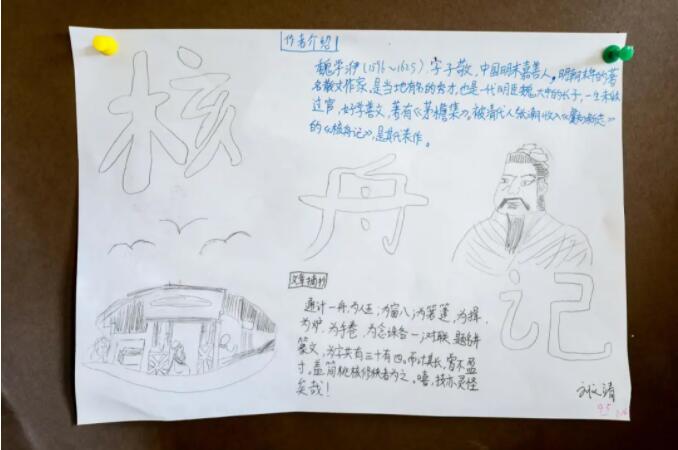 作者介绍
魏学洢(1596~1625),字子敬,中国明末嘉善人。明朝末年的著
名散文作家,是当地有名的秀才,也是一代明臣魏大中的长子,一生未做
过官,好学善文,著有《茅檐集》。被清代人张潮收入《虞初新志》
的《核舟记》,是其代表作。
核
舟
记
文章摘抄
通计一舟,为人五,为窗八,为箬篷,为楫,
为炉,为手卷,为念珠各一;对联、题名并
篆文,为字共有三十有四。而计其长,曾不盈
寸。盖简桃核修狭者为之。嘻,技亦灵怪
矣哉!